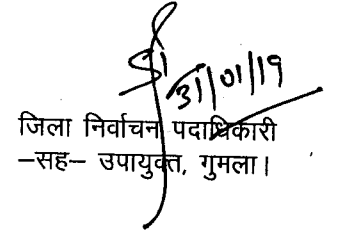 31/01/19
जिला निर्वाचन पदाधिकारी
–सह– उपायुक्त, गुमला।